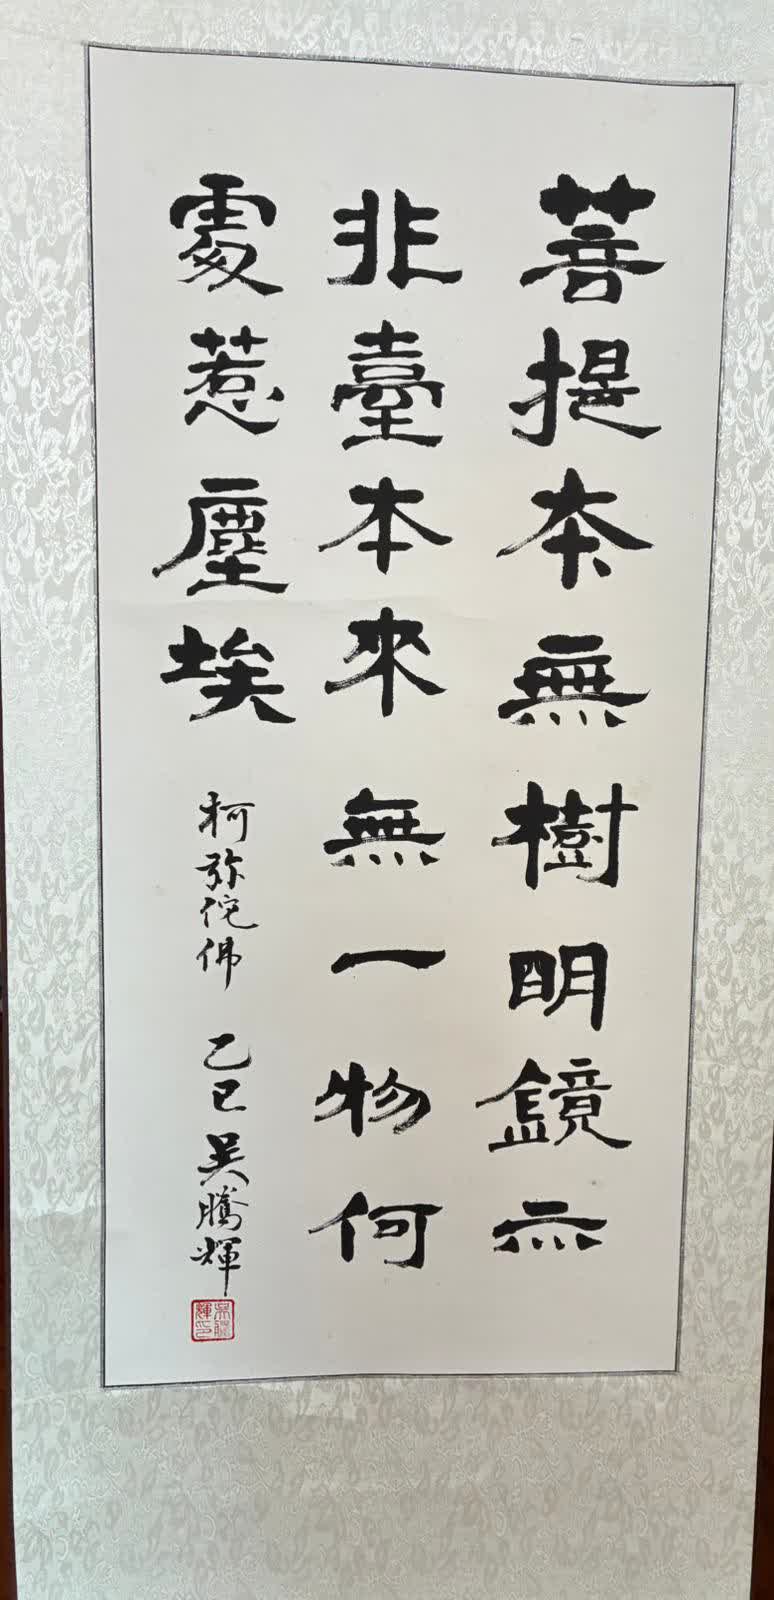 菩提本無樹明鏡亦
非臺本來無一物何
處惹塵埃
柯弥佗佛 乙巳 吴騰輝